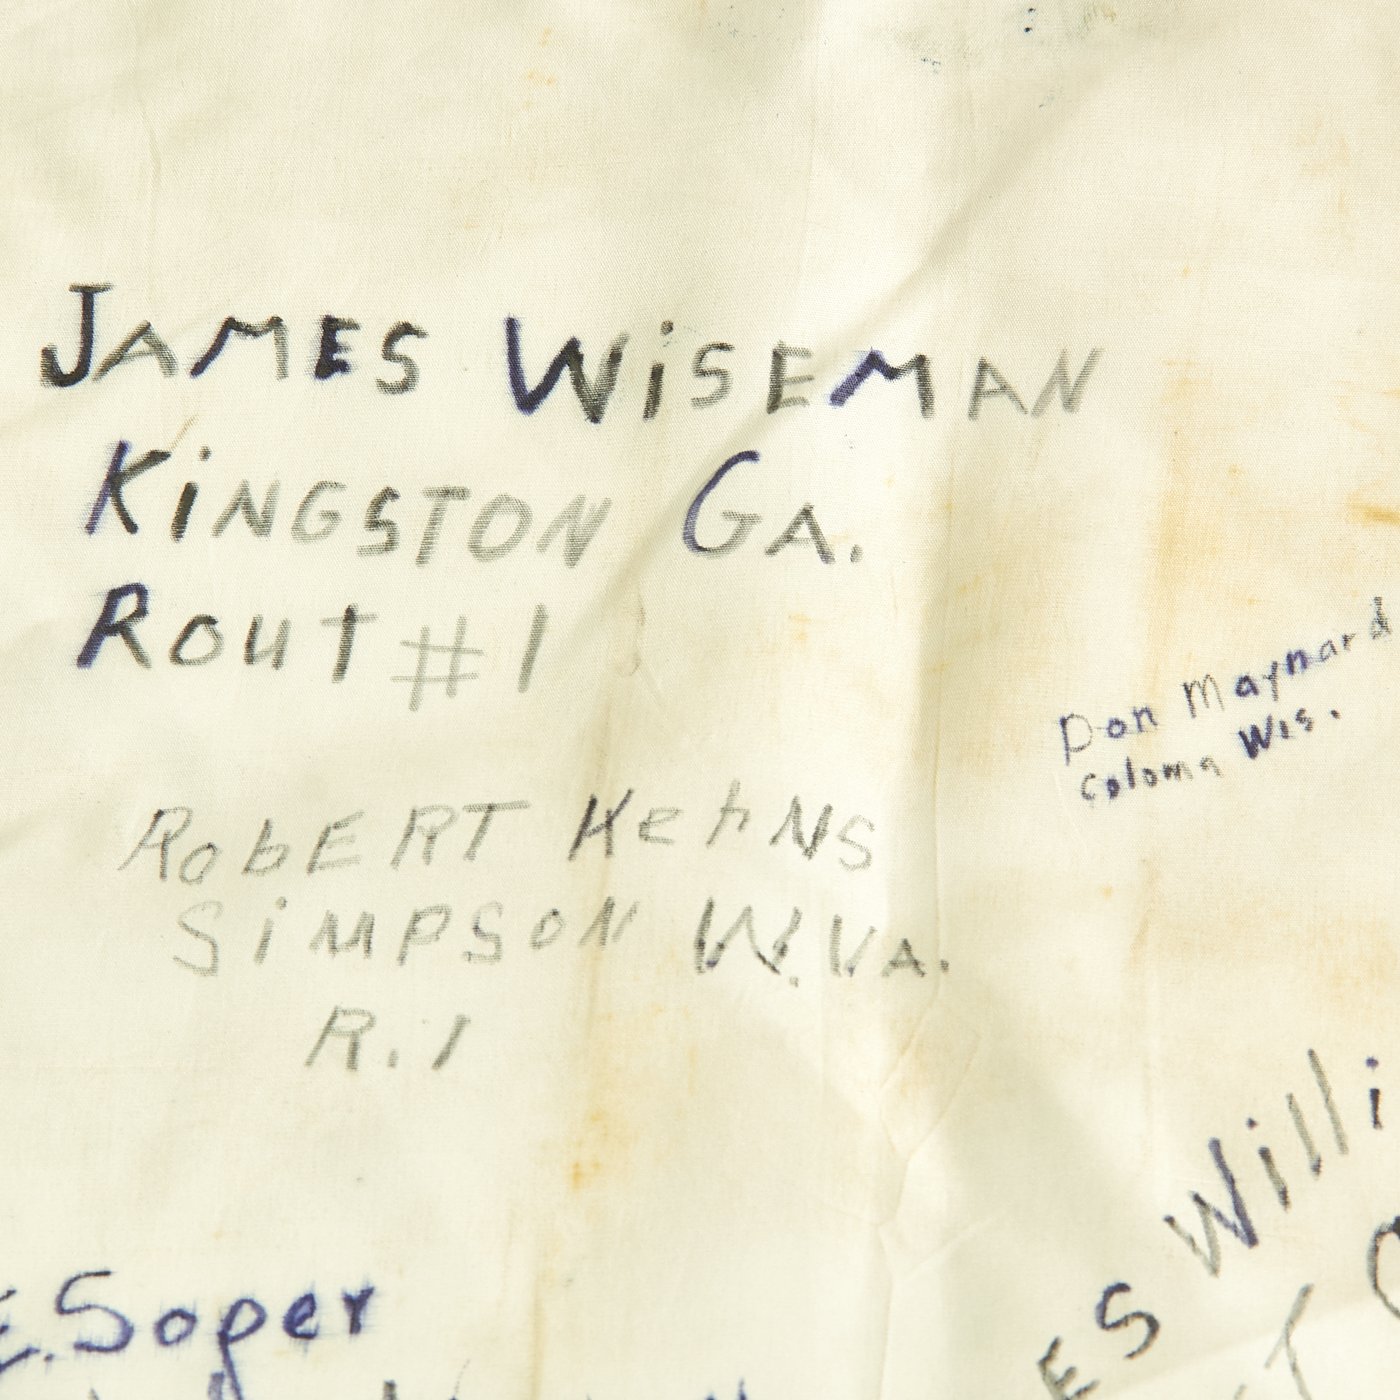 JAMES WISEMAN
KINGSTON GA.
ROUT #1
Don Maynard
Coloma Wis.
ROBERT KehNS
SIMPSON W.VA.
R.1
ES Willi
E. Soper